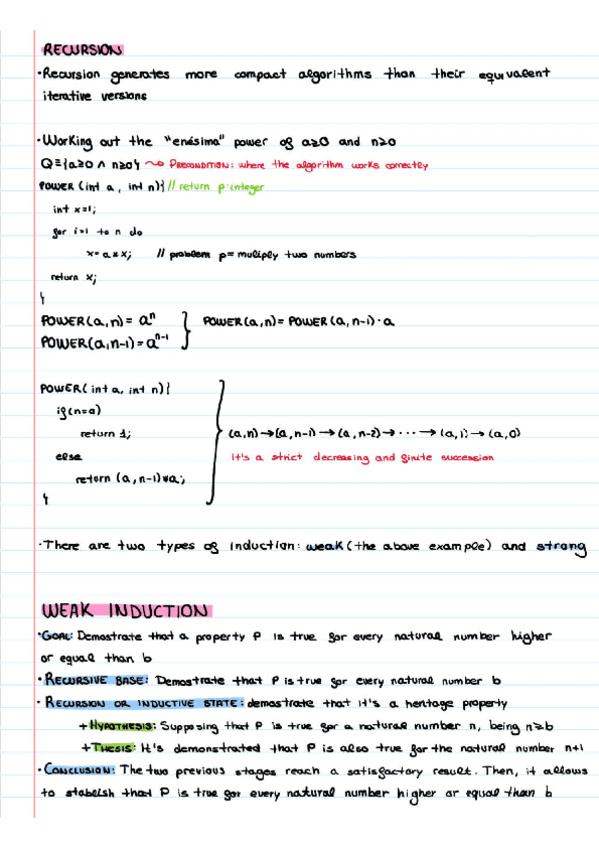 RECURSION
·Recursion generates more compact algorithms than their equivalent
iterative versions
·Working out the "enésima" power of a≥0 and n≥0
Q≡{a≥0 ∧ n≥0} ⤳ PRECONDITION: where the algorithm works correctly
POWER (int a, int n){ // return p:integer
int x=1;
for i=1 to n do
x= a*x; // problem p= muliply two numbers
return x;
}
POWER(a,n)= aⁿ } POWER(a,n)= POWER(a,n-1)·a
POWER(a,n-1)= aⁿ⁻¹
POWER( int a, int n){
if(n=0)
return 1; (a,n)→(a,n-1)→(a,n-2)→···→(a,1)→(a,0)
else It's a strict decreasing and finite succession
return (a,n-1)*a;
}
·There are two types of induction: weak (the above example) and strong
WEAK INDUCTION
·GOAL: Demostrate that a property P is true for every natural number higher
or equal than b
·RECURSIVE BASE: Demostrate that P is true for every natural number b
·RECURSION OR INDUCTIVE STATE: demostrate that it's a heritage property
+HYPOTHESIS: Supposing that P is true for a natural number n, being n≥b
+THESIS: It's demonstrated that P is also true for the natural number n+1
·CONCLUSION: The two previous stages reach a satisfactory result. Then, it allows
to stabelsh that P is true for every natural number higher or equal than b